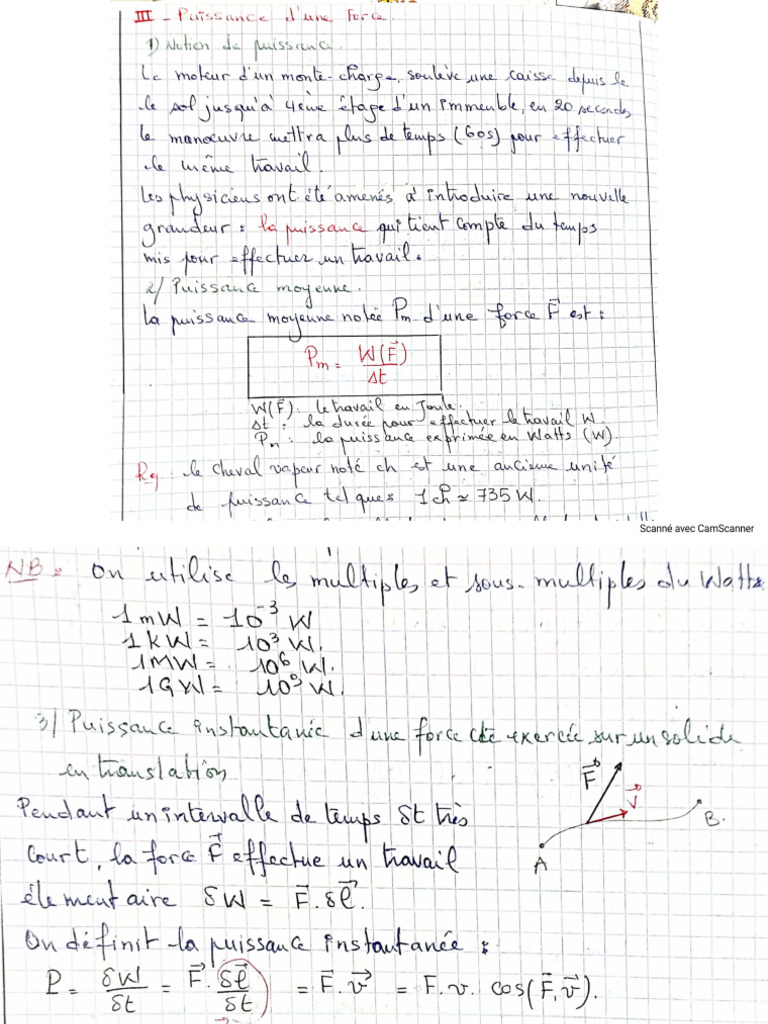 III - Puissance d'une Force.
1) Notion de puissance.
Le moteur d'un monte-charge, soulève une caisse depuis le
le sol jusqu'à 4ème étage d'un immeuble, en 20 secondes
le manœuvre mettra plus de temps (60s) pour effectuer
le même travail.
Les physiciens ont été amenés à introduire une nouvelle
grandeur : la puissance qui tient compte du temps
mis pour effectuer un travail.
2/ Puissance moyenne.
La puissance moyenne notée Pm d'une force F⃗ est :
Pm = W(F⃗) / Δt
W(F⃗) : le travail en Joule.
Δt : la durée pour effectuer le travail W.
Pm : la puissance exprimée en Watts (W).
Rq : le cheval vapeur noté ch est une ancienne unité
de puissance tel que : 1 ch ≃ 735 W.
Scanné avec CamScanner
NB : On utilise les multiples et sous-multiples du Watts.
1 mW = 10⁻³ W
1 kW = 10³ W.
1 MW = 10⁶ W.
1 GW = 10⁹ W.
3/ Puissance instantanée d'une force cte exercée sur un solide
en translation
F⃗
V⃗
B.
A
Pendant un intervalle de temps δt très
court, la force F⃗ effectue un travail
élémentaire δW = F⃗ . δl⃗.
On définit la puissance instantanée :
P = δW / δt = F⃗ . δl⃗ / δt = F⃗ . v⃗ = F . v . cos(F⃗, v⃗).